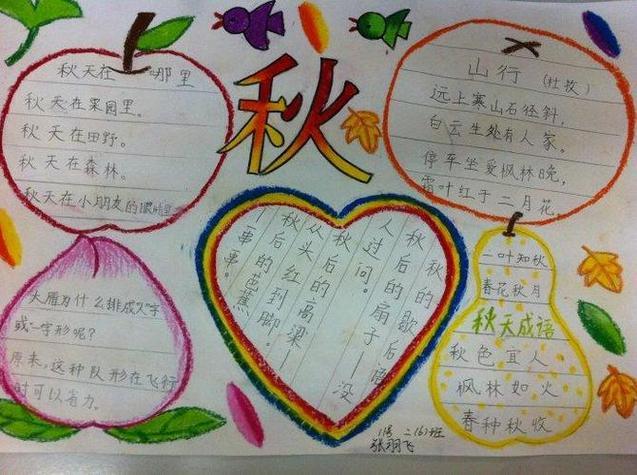 秋天在哪里
秋天在菓园里。
秋天在田野。
秋天在森林。
秋天在小朋友的眼睛里
秋
山行（杜牧）
远上寒山石径斜，
白云生处有人家。
停车坐爱枫林晚，
霜叶红于二月花。
大雁为什么排成"人"字
或"一"字形呢？
原来，这种队形在飞行
时可以省力。
秋的歇后语
秋后的扇子—没
人过问。
秋后的高梁—
从头红到脚。
秋后的芭蕉
—一串串。
一叶知秋
春花秋月
秋天成语
秋色宜人
枫林如火
春种秋收
11号 二(6)班
张羽飞